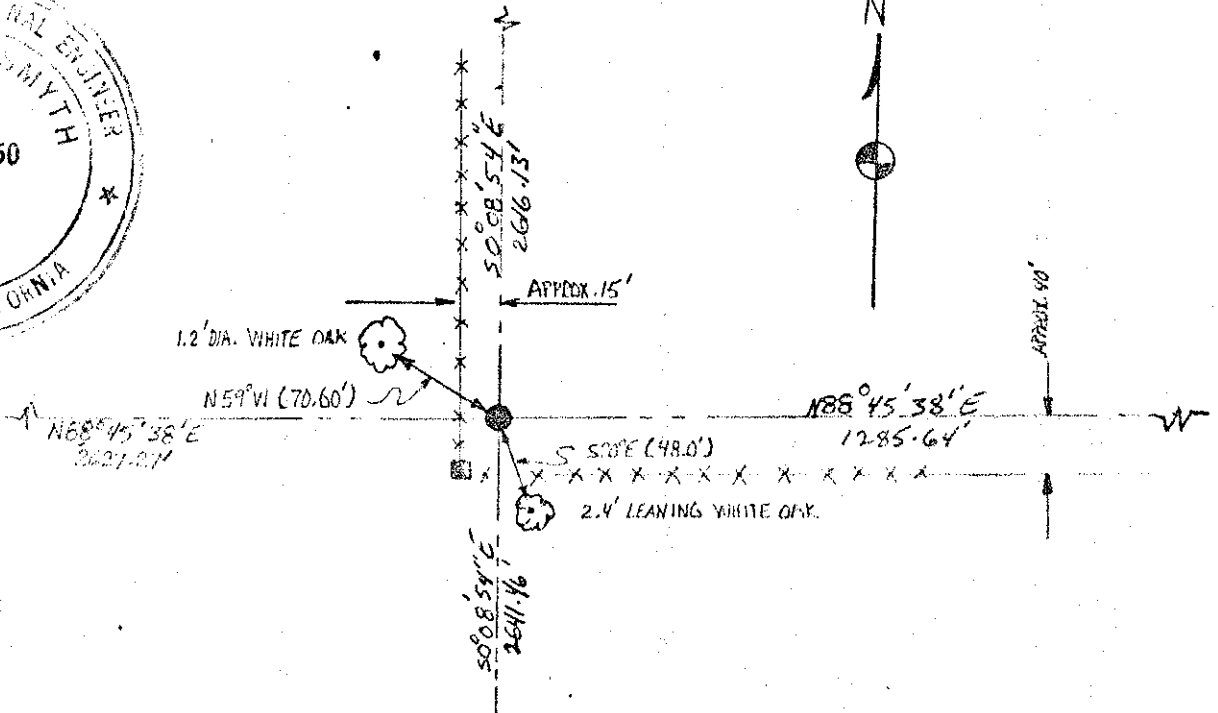 NAL ENGINEER
SMYTH
50
ORNIA
N
S0°08'54"E
2616.13'
APPROX. 15'
APPROX. 40'
1.2' DIA. WHITE OAK
N59°W (70.60')
N88°45'38"E
1285.64'
N88°45'38"E
S20°E (48.0')
2.4' LEANING WHITE OAK.
S0°08'54"E
2641.46'